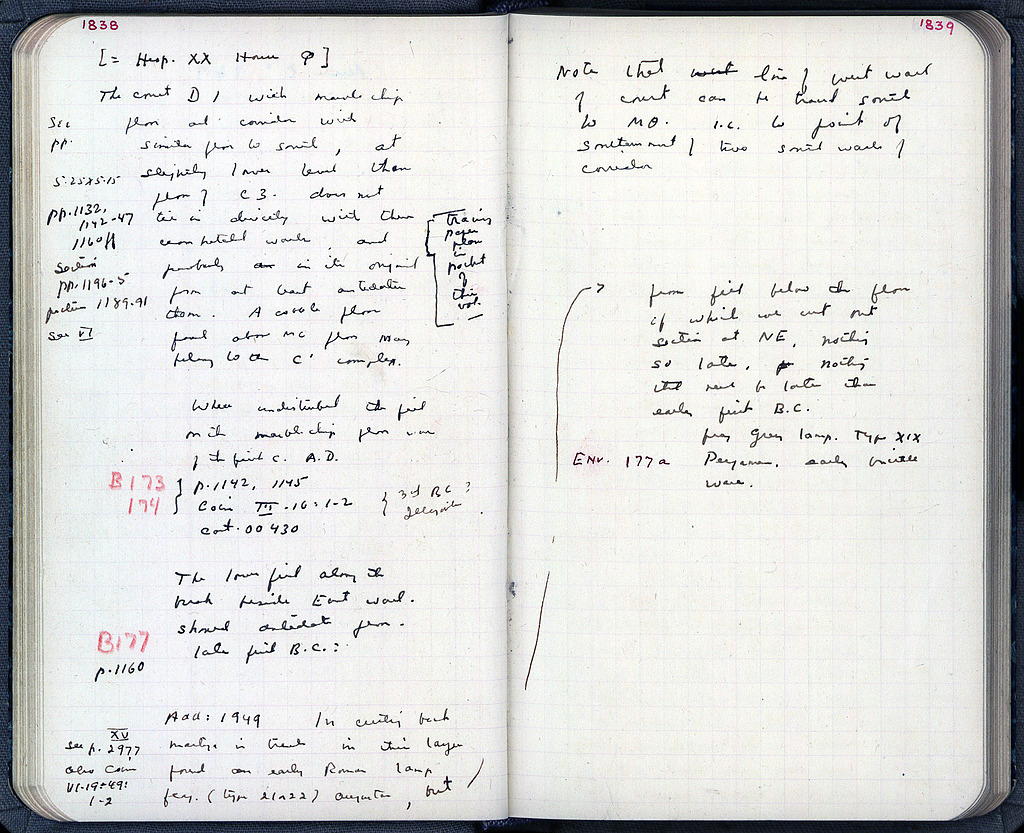 1838
[= Hesp. XX House P]
The court D 1 with marble chip
floor and corridor with
similar floor to south, at
slightly lower level than
floor of C3. does not
tie in directly with them
walls, and
probably in its original
form at least antedates
them. A cobble floor
found above mc floor may
belong to the C' complex.
see
pp.
5.25 x 5.15
pp. 1132,
1142-47
1160ff
Section
pp. 1196-5
1189-91
see VI
tracing
paper
plan
in
pocket
of
this
vol.
Where undisturbed the fill
on the marble chip floor was
of the first c. A.D.
B173
174
p. 1142, 1145
Coin III -16: 1-2
cont. 00430
3rd BC?
The lower fill along the
trench beside East wall.
should antedate floor.
late first B.C.:
B177
p. 1160
Add: 1949 In cutting back
in trench in this layer
found an early Roman lamp
frag. (type 21022) Augustan, but
XV
see p. 2977
also Coin
VI-19-49:
1-2
1839
Note that line of west wall
of court can be traced south
to MΘ. i.e. to point of
of two south walls of
corridor
? from fill below the floor
of which we cut out
section at NE, nothing
so late, nothing
need be later than
early first B.C.
frag Grey lamp. Type XIX
Env. 177a Pergamene, early
ware.